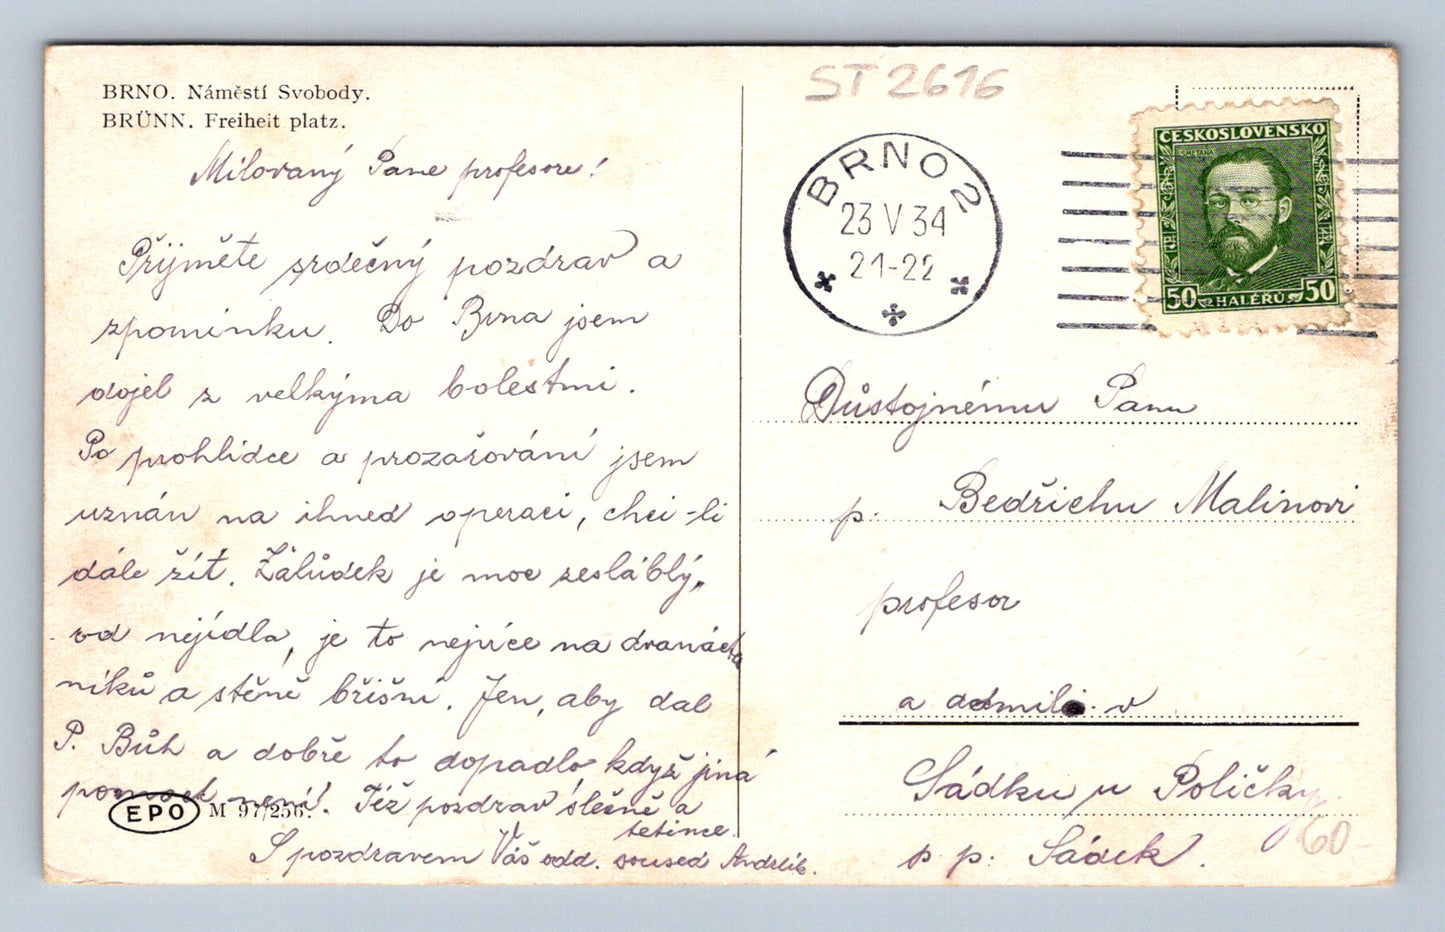 BRNO. Náměstí Svobody.
BRÜNN. Freiheit platz.
Milovaný Pane profesore!
Přijměte srdečný pozdrav a
zpomínku. Do Brna jsem
dojel z velkýma bolestmi.
Po prohlídce a prozařování jsem
uznán na ihned operaci, chci-li
dále žít. Žalůdek je moc zesláblý,
od nejídla, je to nejvíce na dvanácta
níků a stěně břišní. Jen, aby dal
P. Bůh a dobře to dopadlo když jiná
pomoc není! Též pozdrav slečně a
tetince.
S pozdravem Váš odd. soused
EPO M 97/256.
ST 2616
BRNO 2
23 V 34
21-22
ČESKOSLOVENSKO
SMETANA
50 HALÉŘŮ 50
Důstojnému Panu
p. Bedřichu Malinovi
profesor
a v
Sádku u Poličky
p. p. Sádek.
60-